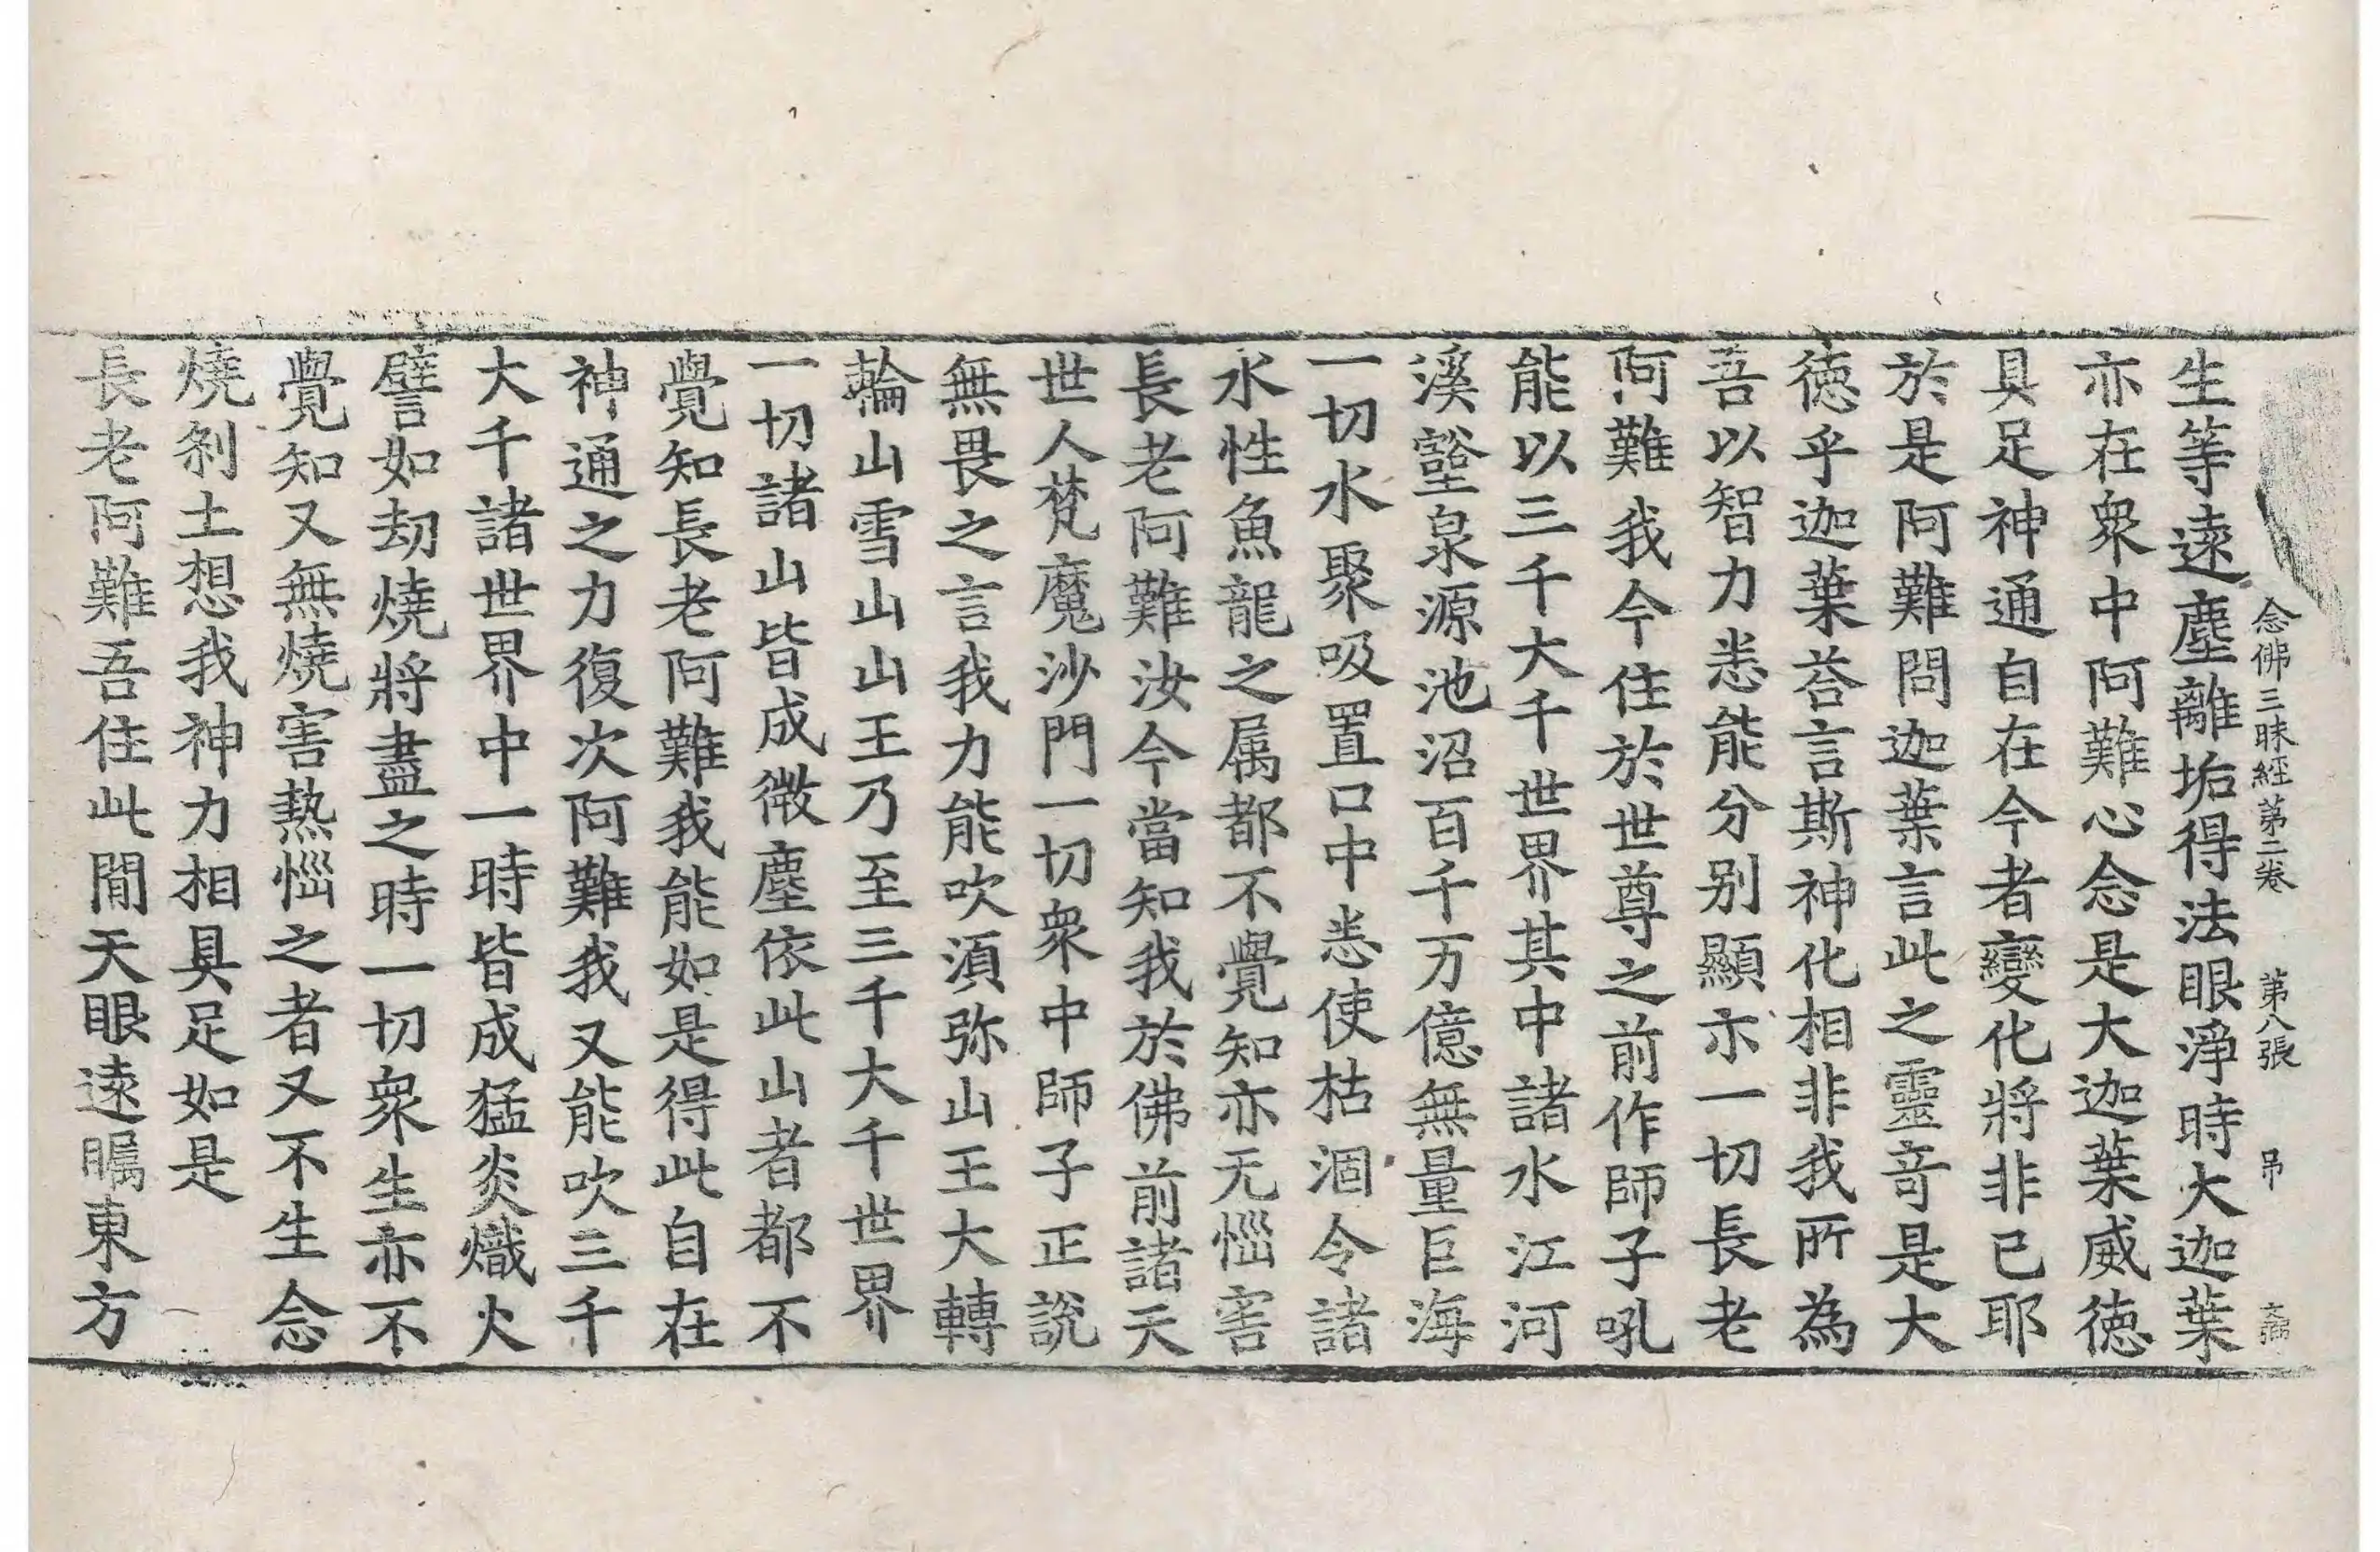 念佛三昧經第二卷 第八張 吊
生等遠塵離垢得法眼淨時大迦葉
亦在衆中阿難心念是大迦葉威徳
具足神通自在今者變化將非已耶
於是阿難問迦葉言此之靈竒是大
徳乎迦葉荅言斯神化相非我所為
吾以智力悉能分别顯示一切長老
阿難我今住於世尊之前作師子吼
能以三千大千世界其中諸水江河
溪壑泉源池沼百千万億無量巨海
一切水聚吸置口中悉使枯涸令諸
水性魚龍之属都不覺知亦无惱害
長老阿難汝今當知我於佛前諸天
世人梵魔沙門一切衆中師子正說
無畏之言我力能吹湏弥山王大轉
輪山雪山山王乃至三千大千世界
一切諸山皆成微塵依此山者都不
覺知長老阿難我能如是得此自在
神通之力復次阿難我又能吹三千
大千諸世界中一時皆成猛炎熾火
譬如劫燒將盡之時一切衆生亦不
覺知又無燒害熱惱之者又不生念
燒刹土想我神力相具足如是
長老阿難吾住此閒天眼遠矚東方